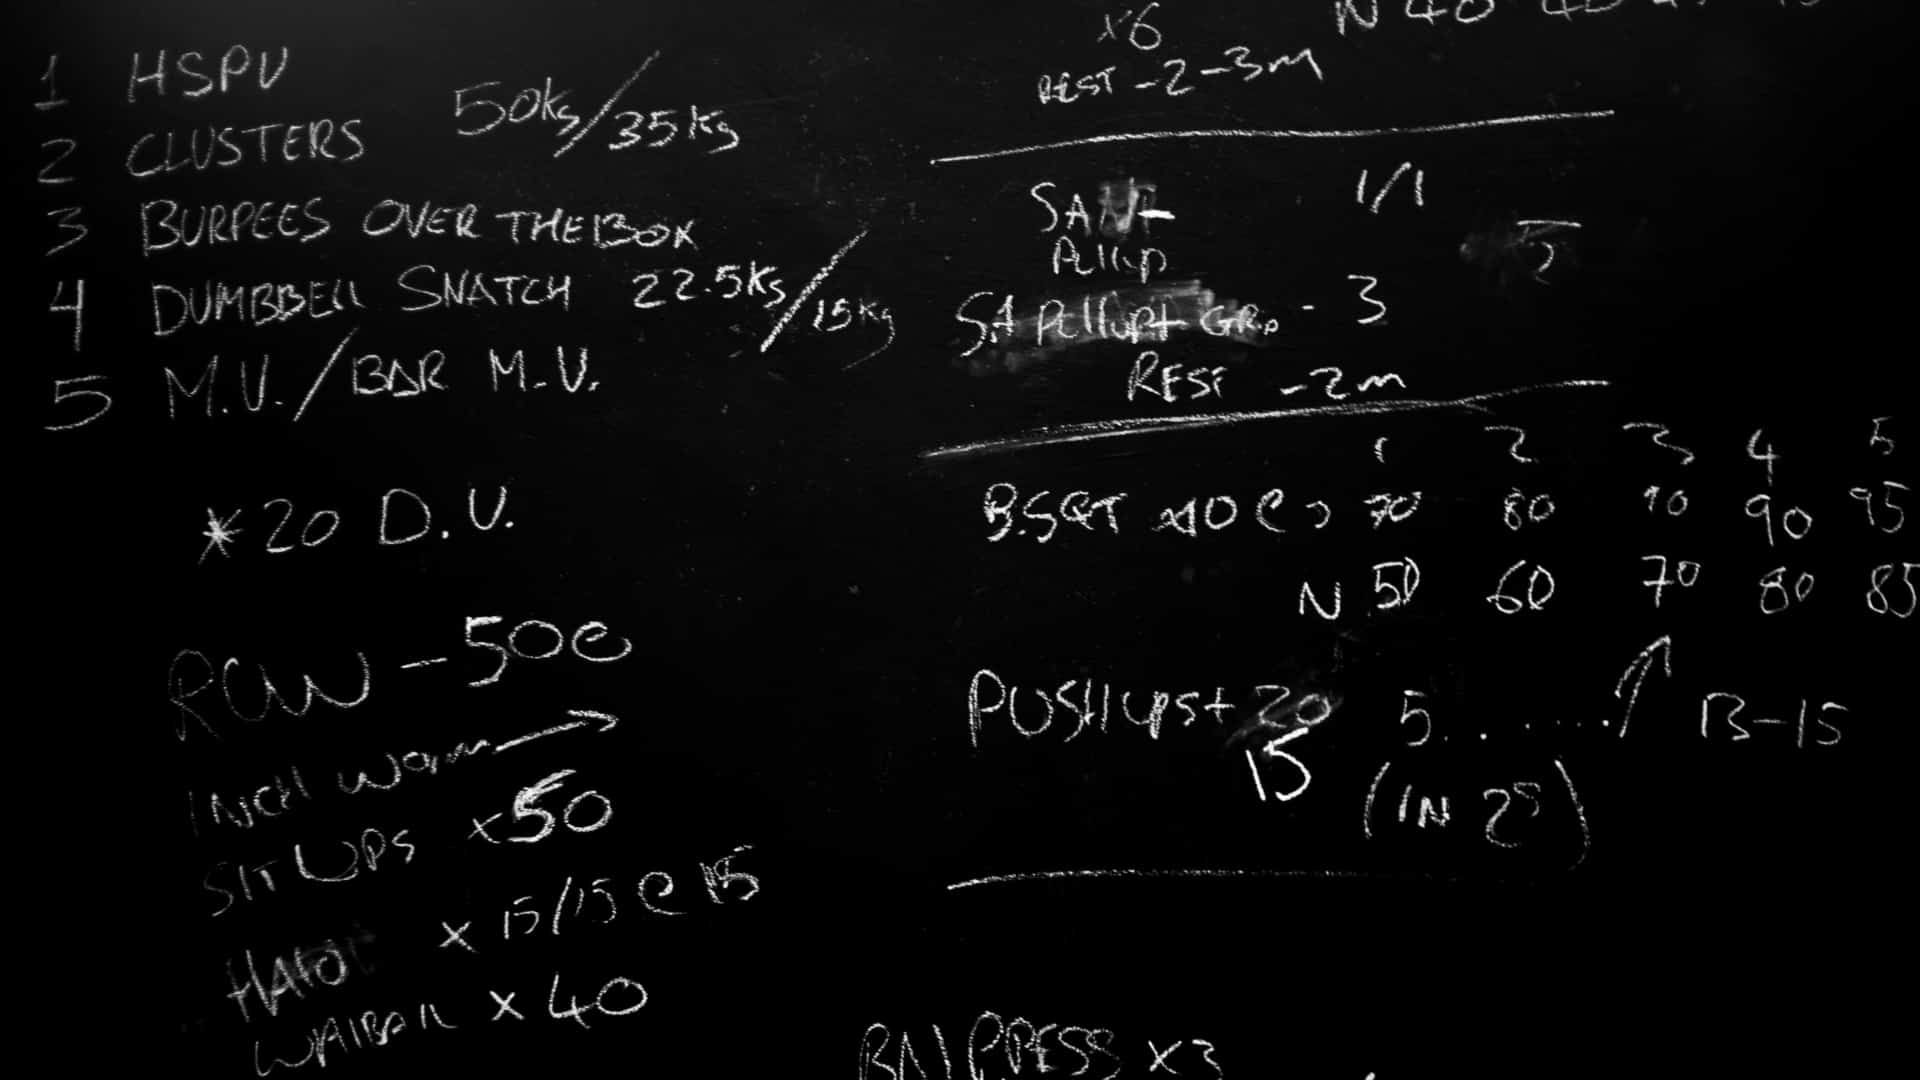 1 HSPU
2 CLUSTERS 50kg/35kg
3 BURPEES OVER THE BOX
4 DUMBBELL SNATCH 22.5kg/15kg
5 M.U./BAR M.U.
*20 D.U.
ROW - 500
INCH WORM →
SIT UPS x50
HALO x 15/15 @ 15
WALBALL x 40
x6
REST - 2-3m
N 40
1/1
Pullup
SA Pullup+ GRIP - 3
REST - 2m
1 2 3 4 5
B.SQT x10 @ 70 80 90 90 95
N 50 60 70 80 85
PUSHUPS + 20 5........↑ 13-15
15 (IN 25)
BN PRESS x3